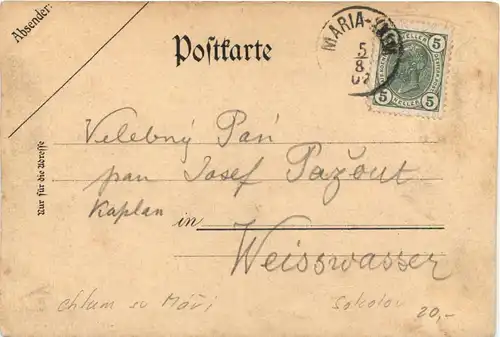 Absender:
Postkarte
MARIA-
5
8
07
5 HELLER 5
5 HELLER 5
Nur für die Adresse
Velebný Pan
pan Josef Pažout
Kaplan in
Weisswasser
Chlum sv Máří
Sokolov
20,-